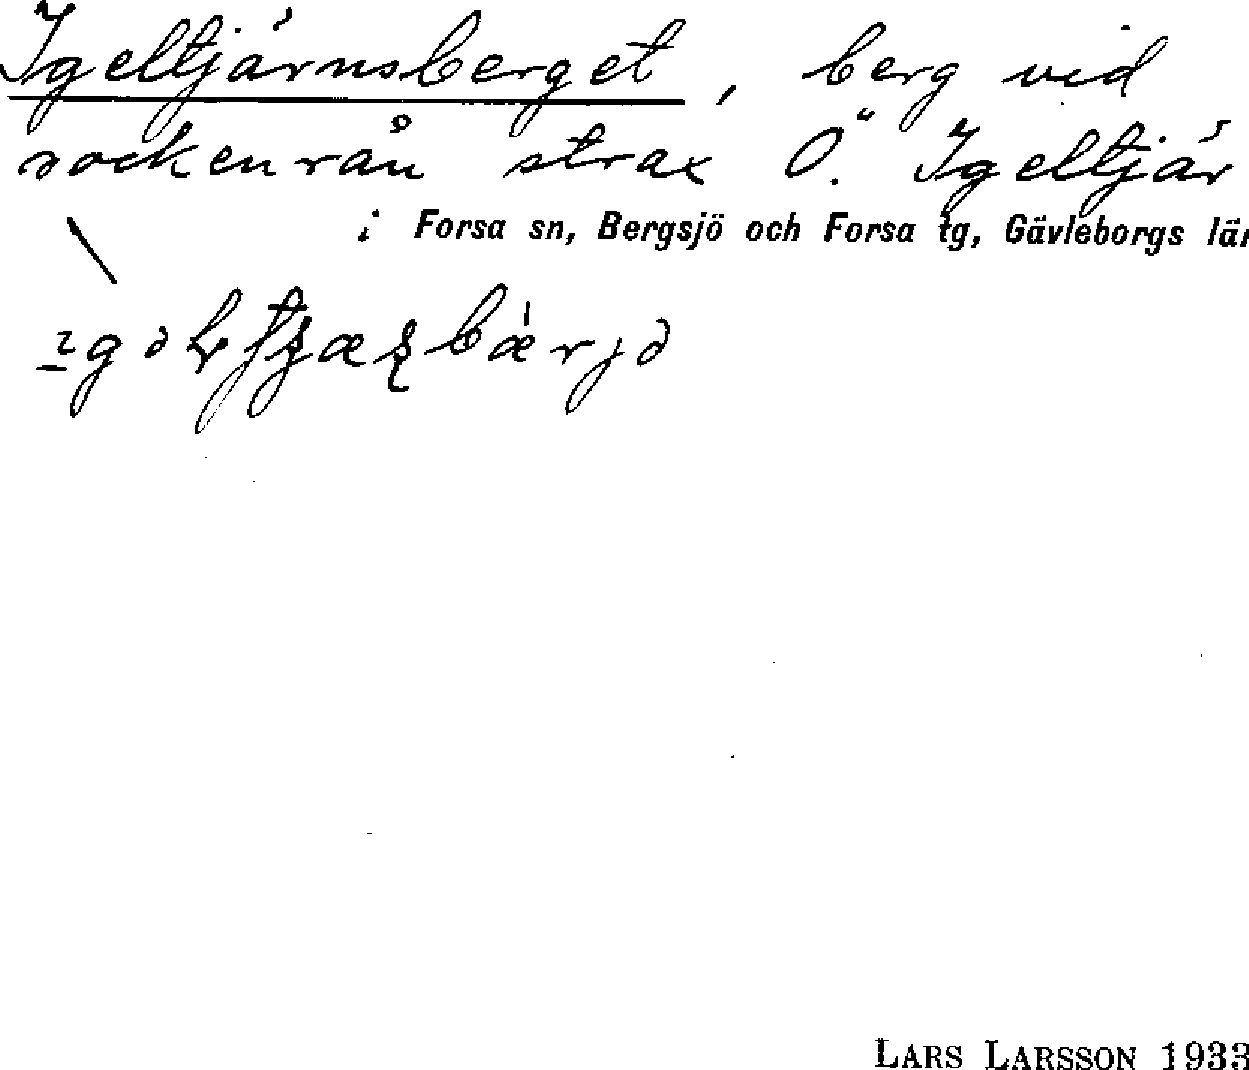 Igeltjärnsberget, berg vid
sockenrån strax Ö. Igeltjär
i Forsa sn, Bergsjö och Forsa tg, Gävleborgs lär
LARS LARSSON 1933